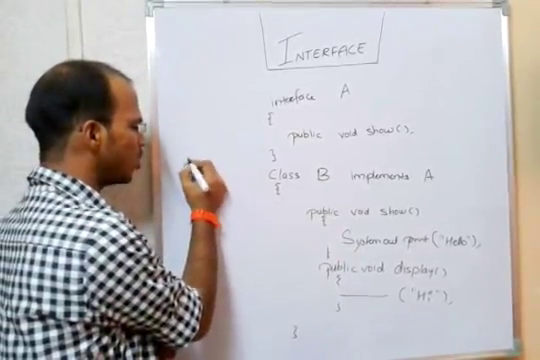 INTERFACE
interface A
{
public void show();
}
Class B implements A
{
public void show()
{
System.out.print("Hello");
}
public void display()
{
("Hi");
}
}